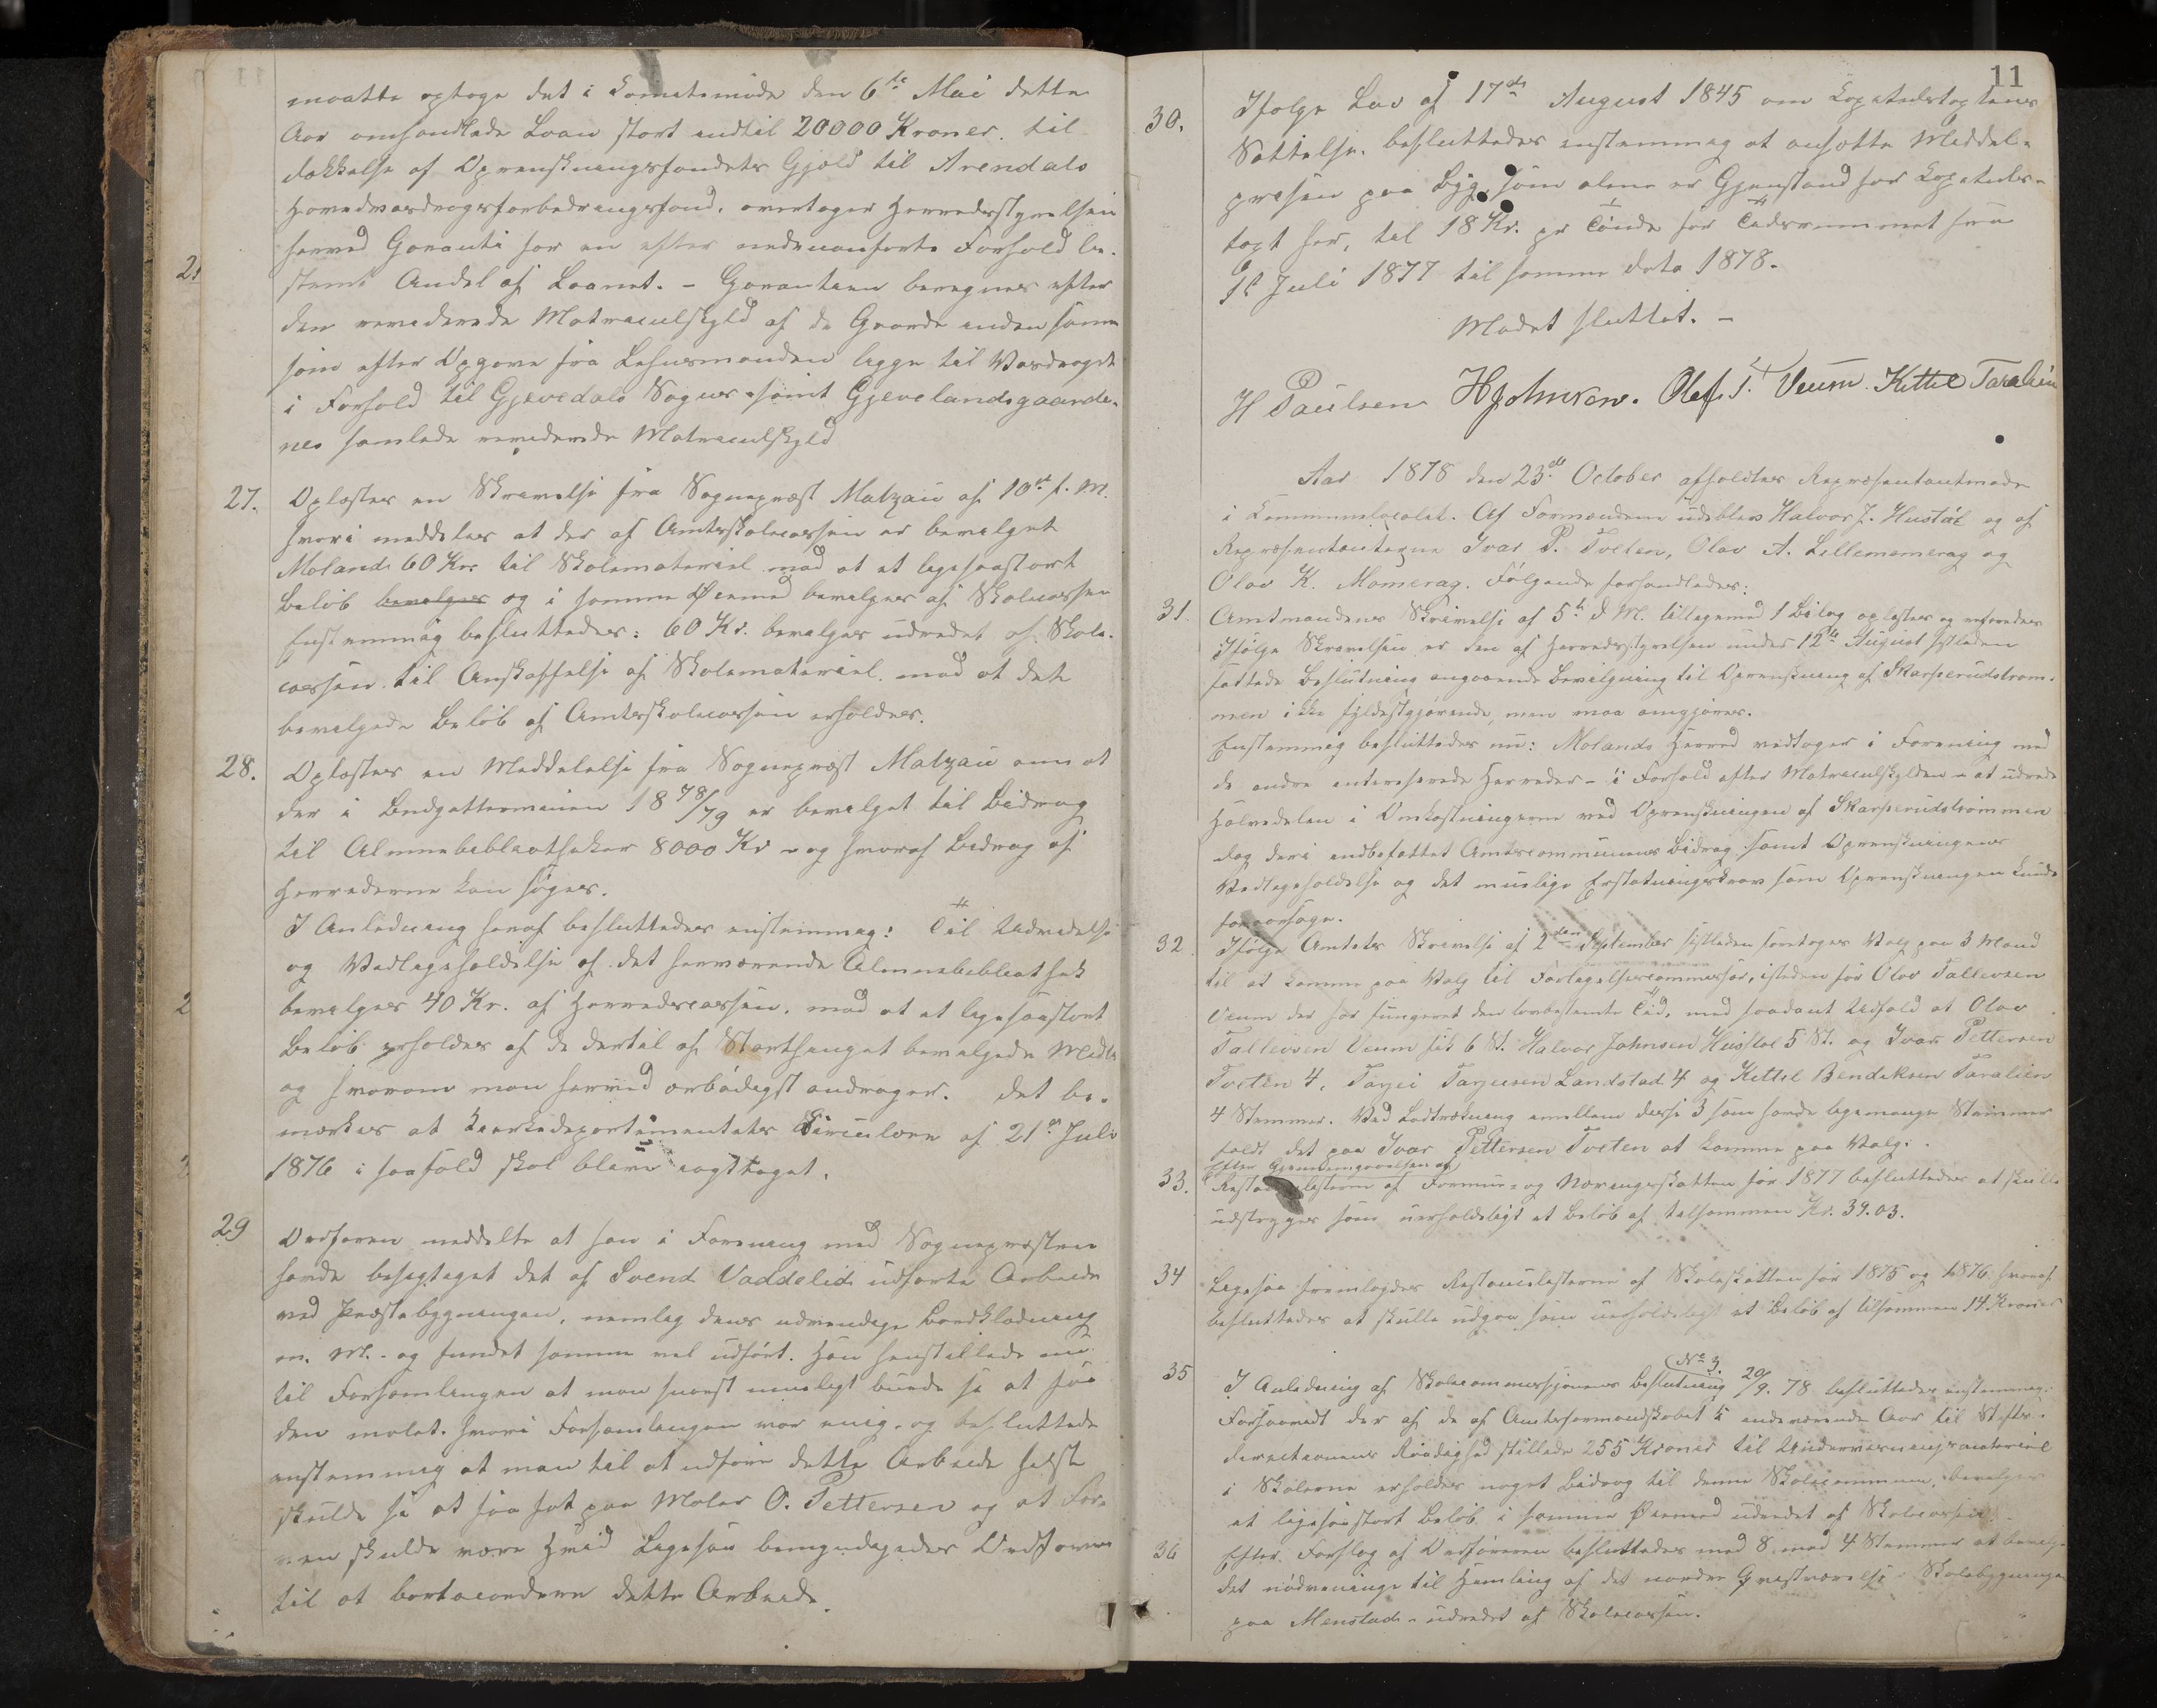 moatte optage det i Comitemøde den 6te Mai dette
Aar omhandlede Laan stort indtil 20000 Kroner til
dækkelse af Oprenskningsfondets Gjæld til Arendals
Hovedvasdragsforbedringsfond, overtager Herredsstyrelsen
herved Garanti for en efter nedenanførte Forhold be-
stemt Andel af Laanet. - Garantien beregnes efter
den reviderede Matriculskyld af de Gaarde inden
som efter Opgave fra Lehnsmanden ligge til Vasdraget
i Forhold til Gjevedals Sogns samt Gjevelandsgaarde-
nes samlede reviderede Matriculskyld
27. Oplæstes en Skrivelse fra Sognepræst Matzau af 10de f. M.
hvori meddeles at der af Amtsskolecassen er bevilget
Molands 60 Kr. til Skolemateriel mod at et ligesaastort
Beløb bevilges og i samme Øiemed bevilges af Skolecassen
Enstemmig besluttedes: 60 Kr. bevilges udredet af Skole-
cassen til Anskaffelse af Skolemateriel mod at det
bevilgede Beløb af Amtsskolecassen erholdes.
28. Oplæstes en Meddelelse fra Sognepræst Matzau om at
der i Budgetterminen 1878/79 er bevilget til Bidrag
til Almuebibliotheker 8000 Kr - og hvoraf Bidrag af
Herrederne kan søges.
I Anledning heraf besluttedes enstemmig: Til Udvidelse
og Vedligeholdelse af det herværende Almuebibliothek
bevilges 40 Kr. af Herredscassen, mod at et ligesaastort
Beløb erholdes af de dertil af Storthinget bevilgede Midle
og hvorom man herved ærbødigst andrager. Det be-
mærkes at Kirkedepartementets Circulære af 21de Juli
1876 i saafald skal blive iagttaget.
29 Ordføren meddelte at han i Forening med Sognepræsten
havde besigtiget det af Svend Vaddelid udførte Arbeide
ved Præstebygningen, nemlig dens udvendige Bordklædning
m. M. - og fundet samme vel udført. Han henstillede nu
til Forsamlingen at man snarest muligt burde se at faa
den malet. hvori Forsamlingen var enig, og besluttede
enstemmig at man til at udføre dette Arbeide helst
skulde se at faa fat paa Maler O. Pettersen og at Far-
ven skulde være Hvid Ligesaa bemyndigedes Ordføren
til at bortaccordere dette Arbeide.
11
30. Ifølge Lov af 17de August 1845 om Kapitelstaxtens
Sættelse, besluttedes enstemmig at ansætte Middel-
prisen paa Byg, som alene er Gjenstand for Kapitels-
taxt her, til 18 Kr. pr Tønde for Tidsrummet fra
1e Juli 1877 til samme dato 1878.
Mødet sluttet. -
H Paulsen HJohnsen. Olaf T. Veum. Kittil Taralien
Aar 1878 den 23de October afholdtes Repræsentantmøde
i Communelocalet. Af Formændene udeblev Halvor J. Hustøl og af
Repræsentanterne Ivar P. Tveten, Olav A. Lillemomrag og
Olav K. Momrag. Følgende forhandledes:
31. Amtmandens Skrivelse af 5te d M. tilligemed 1 Bilag oplæstes og refereredes
Ifølge Skrivelsen er den af Herredsstyrelsen under 12te August sidstleden
fattede Beslutning angaaende Bevilgning til Oprenskning af Skarperudstrøm-
men ikke fyldestgjørende, men maa omgjøres.
Enstemmig besluttedes nu: Molands Herred vedtager i Forening med
de andre interesserede Herreder - i Forhold efter Matriculskylden - at udrede
Halvdelen i Omkostningerne ved Oprenskningen af Skarperudstrømmen
dog deri indbefattet Amtscommunens Bidrag samt Oprenskningens
Vedligeholdelse og det mulige Erstatningskrav som Oprenskningen kunde
foraarsage.
32. Ifølge Amtets Skrivelse af 2den September sidstleden foretoges Valg paa 3 Mænd
til at komme paa Valg til Forligelsescommissær, isteden for Olav Tallevsen
Veum der har fungeret den lovbestemte Tid, med saadant Udfald at Olav
Tallevsen Veum fik 6 St. Halvor Johnsen Hustøl 5 St. og Ivar Pettersen
Tveten 4, Tarjei Tarjeisen Landstad 4 og Kittil Bendiksen Taralien
4 Stemmer. Ved Lodtrækning imellem disse 3 som havde ligemange Stemmer
faldt det paa Ivar Pettersen Tveten at komme paa Valg.
Efter Gjennemgaaelsen af
33. Restancelisterne af Formues- og Næringsskatten for 1877 besluttedes at skulle
udstryges som uerholdeligt et Beløb af tilsammen Kr. 39.03.
34 Ligesaa fremlagdes Restancelisterne af Skoleskatten for 1875 og 1876 hvoraf
besluttedes at skulle udgaa som uerholdeligt et Beløb af tilsammen 14 Kroner
No 3.
35 I Anledning af Skolecommissionens Beslutning 20/9. 78 besluttedes enstemmig:
Forsaavidt der af de af Amtsformandskabet i indeværende Aar til Stifts-
directionens Raadighed stillede 255 Kroner til Undervisningsmateriel
i Skolerne erholdes noget Bidrag til denne Skolecommune, bevilges
et ligesaastort Beløb i samme Øiemed udredet af Skolecassen.
36 Efter Forslag af Ordføreren besluttedes med 8 mod 4 Stemmer at bevilge
det nødvendige til Himling af det nordre Gjesteværelse i Skolebygningen
paa Menstad - udredet af Skolecassen.